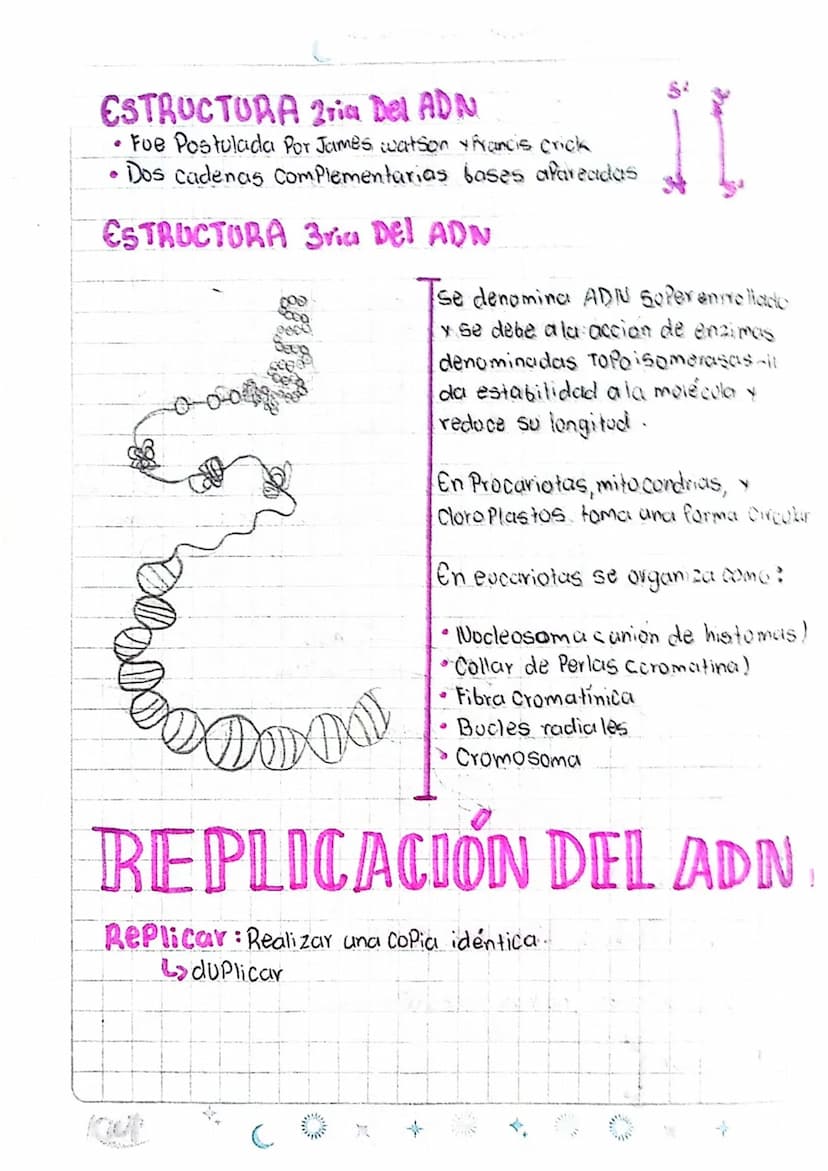 ESTRUCTURA 2ria Del ADN
• Fue Postulada Por James watson y Francis Crick
• Dos cadenas complementarias bases apareadas
5'
3'
5'
ESTRUCTURA 3ria DEl ADN
se denomina ADN superenrrollado
y se debe a la accion de enzimas
denominadas TOPoisomerasas
da estabilidad a la molécula y
reduce su longitud.
En Procariotas, mitocondrias, y
cloroplastos. toma una forma circular
En eucariotas se organiza como:
• Nucleosoma (union de histomas)
• Collar de Perlas (cromatina)
• Fibra Cromatínica
• Bucles radiales
• Cromosoma
REPLICACIÓN DEL ADN
Replicar: Realizar una copia idéntica.
↳ duplicar